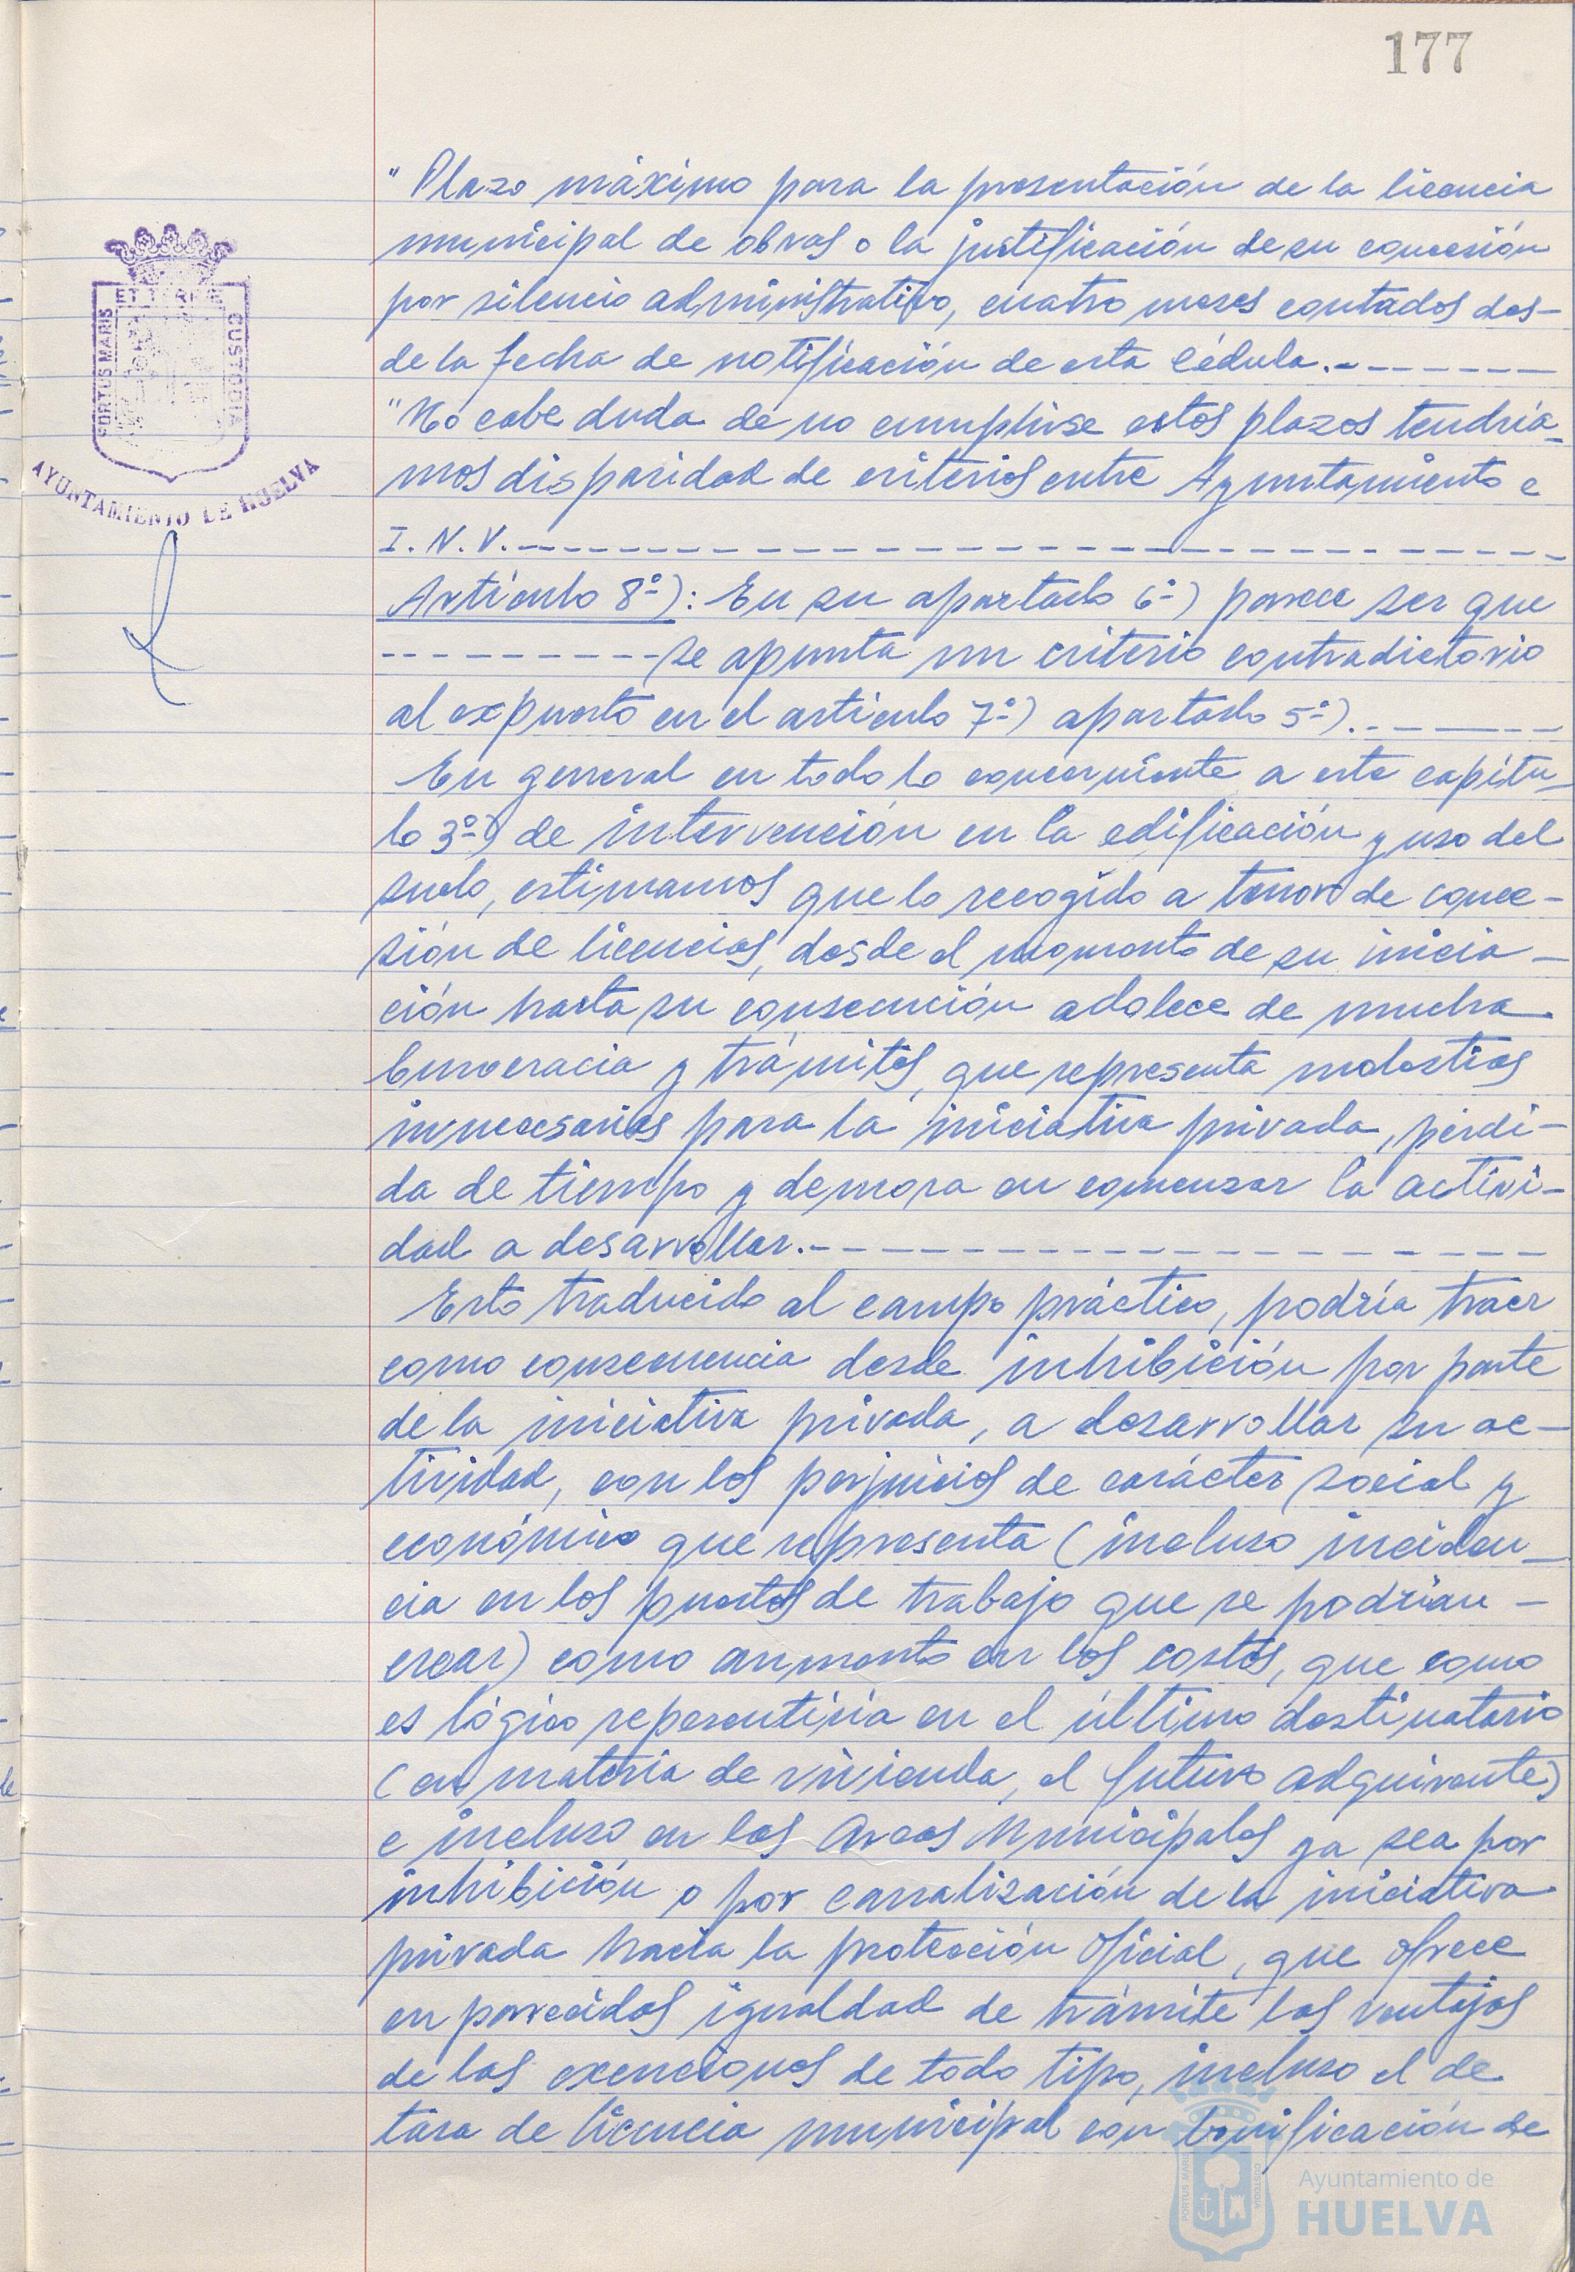 177
"Plazo máximo para la presentación de la licencia
municipal de obras o la justificación de su concesión
por silencio administrativo, cuatro meses contados des-
de la fecha de notificación de esta Cédula.--------
"No cabe duda de no cumplirse estos plazos tendría-
mos disparidad de criterios entre Ayuntamiento e
I. N. V.------------------------
Artículo 8º): En su apartado 6º) parece ser que
----------se apunta un criterio contradictorio
al expuesto en el artículo 7º) apartado 5º).-------
En general en todo lo concerniente a este capítu-
lo 3º) de intervención en la edificación y uso del
suelo, estimamos que lo recogido a tenor de conce-
sión de licencias, desde el momento de su inicia-
ción hasta su consecución adolece de mucha
burocracia y trámites, que representa molestias
innecesarias para la iniciativa privada, pérdi-
da de tiempo y demora en comenzar la activi-
dad a desarrollar.--------------------
Esto traducido al campo práctico, podría traer
como consecuencia desde inhibición por parte
de la iniciativa privada, a desarrollar su ac-
tividad, con los perjuicios de carácter social y
económico que representa (incluso inciden-
cia en los puestos de trabajo que se podrían-
crear) como aumento en los costes, que como
es lógico repercutiría en el último destinatario
(en materia de vivienda, el futuro adquirente)
e incluso en las Arcas Municipales ya sea por
inhibición o por canalización de la iniciativa
privada hacia la protección oficial, que ofrece
en parecidas igualdad de trámite las ventajas
de las exenciones de todo tipo, incluso el de
tasa de licencia municipal con bonificación de
ET TERRAE
PORTUS MARIS
CUSTODIA
AYUNTAMIENTO DE HUELVA
Ayuntamiento de
HUELVA